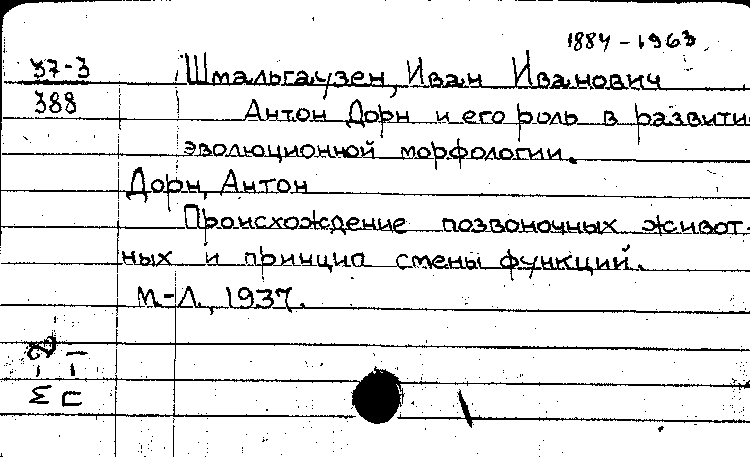 1884-1963
37-3 Шмальгаузен, Иван Иванович
388 Антон Дорн и его роль в развити
эволюционной морфологии.
Дорн, Антон
Происхождение позвоночных живот-
ных и принцип смены функций.
М.-Л., 1937.